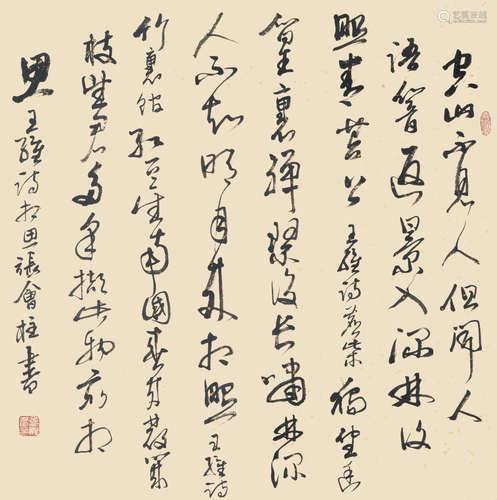 空山不見人但聞人
語響返景入深林復
照青苔上 王維詩鹿柴 獨坐幽
篁裏彈琴復長嘯林深
人不知明月來相照 王維詩
竹裏館 紅豆生南國春來發幾
枝願君多采擷此物最相
思 王維詩相思 張會柱書